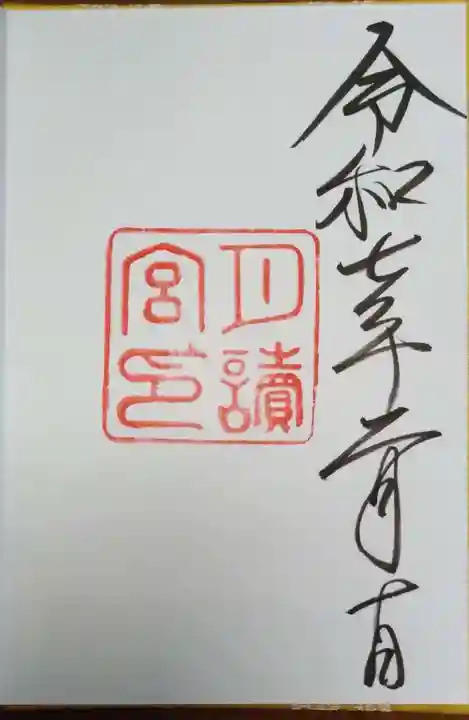 令和七年二月十日
月讀
宮印